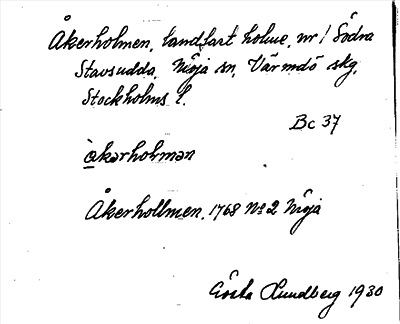 Åkerholmen, landfast holme, nr 1 Södra
Stavsudda, Möja sn, Värmdö skg,
Stockholms l.
Bc 37
`åkərholmən
Åkerhollmen, 1768 No 2 Möja
Gösta Lundberg 1930